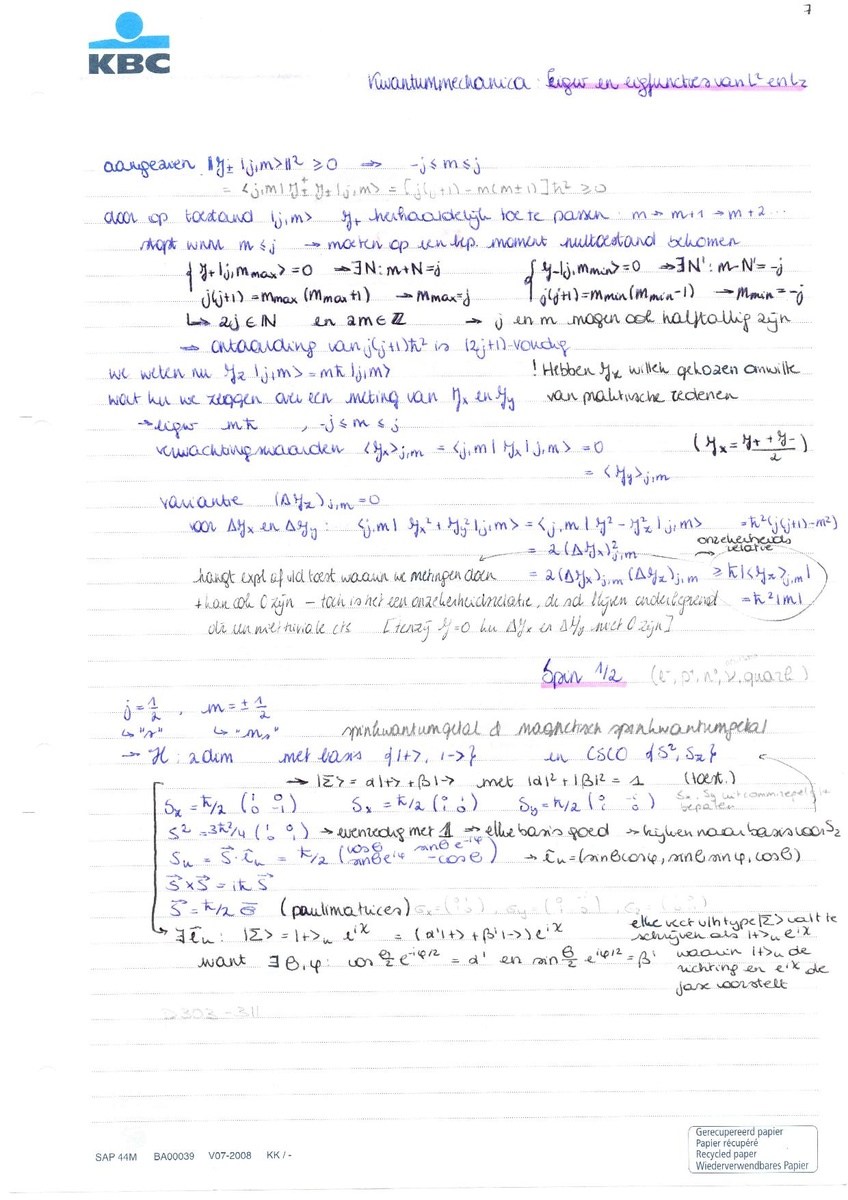 7
KBC
Kwantummechanica: Eigw en eigfuncties van L² en Lz
aangezien ‖J± |j,m>‖² ≥ 0 ⇒ -j ≤ m ≤ j
= <j,m| J±⁺ J± |j,m> = [j(j+1) - m(m±1)]ħ² ≥ 0
door op toestand |j,m> J+ herhaaldelijk toe te passen: m → m+1 → m+2 ...
stopt wnr m ≤ j → moeten op een bep. moment nultoestand bekomen
{ J+|j,mmax> = 0 → ∃N: m+N=j { J-|j,mmin> = 0 → ∃N': m-N'=-j
j(j+1) = mmax(mmax+1) → mmax=j j(j+1) = mmin(mmin-1) → mmin=-j
↳ 2j ∈ ℕ en 2m ∈ ℤ → j en m mogen ook halftallig zijn
⇒ ontaarding van j(j+1)ħ² is (2j+1)-voudig
we weten nu Jz |j,m> = mħ |j,m> ! Hebben Jz willek gekozen omwille
wat ku we zeggen over een meting van Jx en Jy van praktische redenen
→ eigw mħ , -j ≤ m ≤ j
verwachtingswaarden <Jx>j,m = <j,m| Jx |j,m> = 0 (Jx = J+ + J- / 2)
= <Jy>j,m
variantie (ΔJz)j,m = 0
voor ΔJx en ΔJy: <j,m| Jx² + Jy² |j,m> = <j,m| J² - Jz² |j,m> = ħ²(j(j+1)-m²)
= 2(ΔJx)²j,m → onzekerheids relatie
hangt expl af v/d toest waarin we metingen doen = 2(ΔJx)j,m (ΔJx)j,m ≥ ħ|<Jz>j,m|
+ kan ook 0 zijn – toch is het een onzekerheidsrelatie, de sd blijven onderbegrensd = ħ²|m|
dr een niet triviale cts [tenzij J=0 ku ΔJx en ΔJy niet 0 zijn]
Spin 1/2 (e⁻, p⁺, n⁰, ν, quark)
j = 1/2 , m = ± 1/2
↳ "s" ↳ "ms" spinkwantumgetal & magnetisch spinkwantumgetal
→ H: 2 dim met basis {|+>, |->} en CSCO {S², Sz}
→ |Σ> = α|+> + β|-> met |α|² + |β|² = 1 (toest.)
Sx = ħ/2 (1 0 0 -1) Sx = ħ/2 (0 1 1 0) Sy = ħ/2 (0 -i i 0) Sx, Sy uit commrepel bepalen
S² = 3ħ²/4 (1 0 0 1) → evenredig met 𝟙 ⇒ elke basis goed → kijken naar basis voor Sz
Su = S⃗·e⃗u = ħ/2 (cosθ sinθ e^-iφ sinθ e^iφ -cosθ) → e⃗u = (sinθ cosφ, sinθ sinφ, cosθ)
S⃗ × S⃗ = iħ S⃗
S⃗ = ħ/2 σ⃗ (paulimatrices) σx = (0 1 1 0), σy = (0 -i i 0), σz = (1 0 0 -1)
↳ ∃ e⃗u: |Σ> = |+>u e^iχ = (α'|+> + β'|->) e^iχ elke vect v/h type |Σ> valt te schrijven als |+>u e^iχ
want ∃ θ,φ: cos θ/2 e^-iφ/2 = α' en sin θ/2 e^iφ/2 = β' waarin |+>u de richting en e^iχ de fase voorstelt
D303-311
SAP 44M BA00039 V07-2008 KK / -
Gerecupereerd papier
Papier récupéré
Recycled paper
Wiederverwendbares Papier